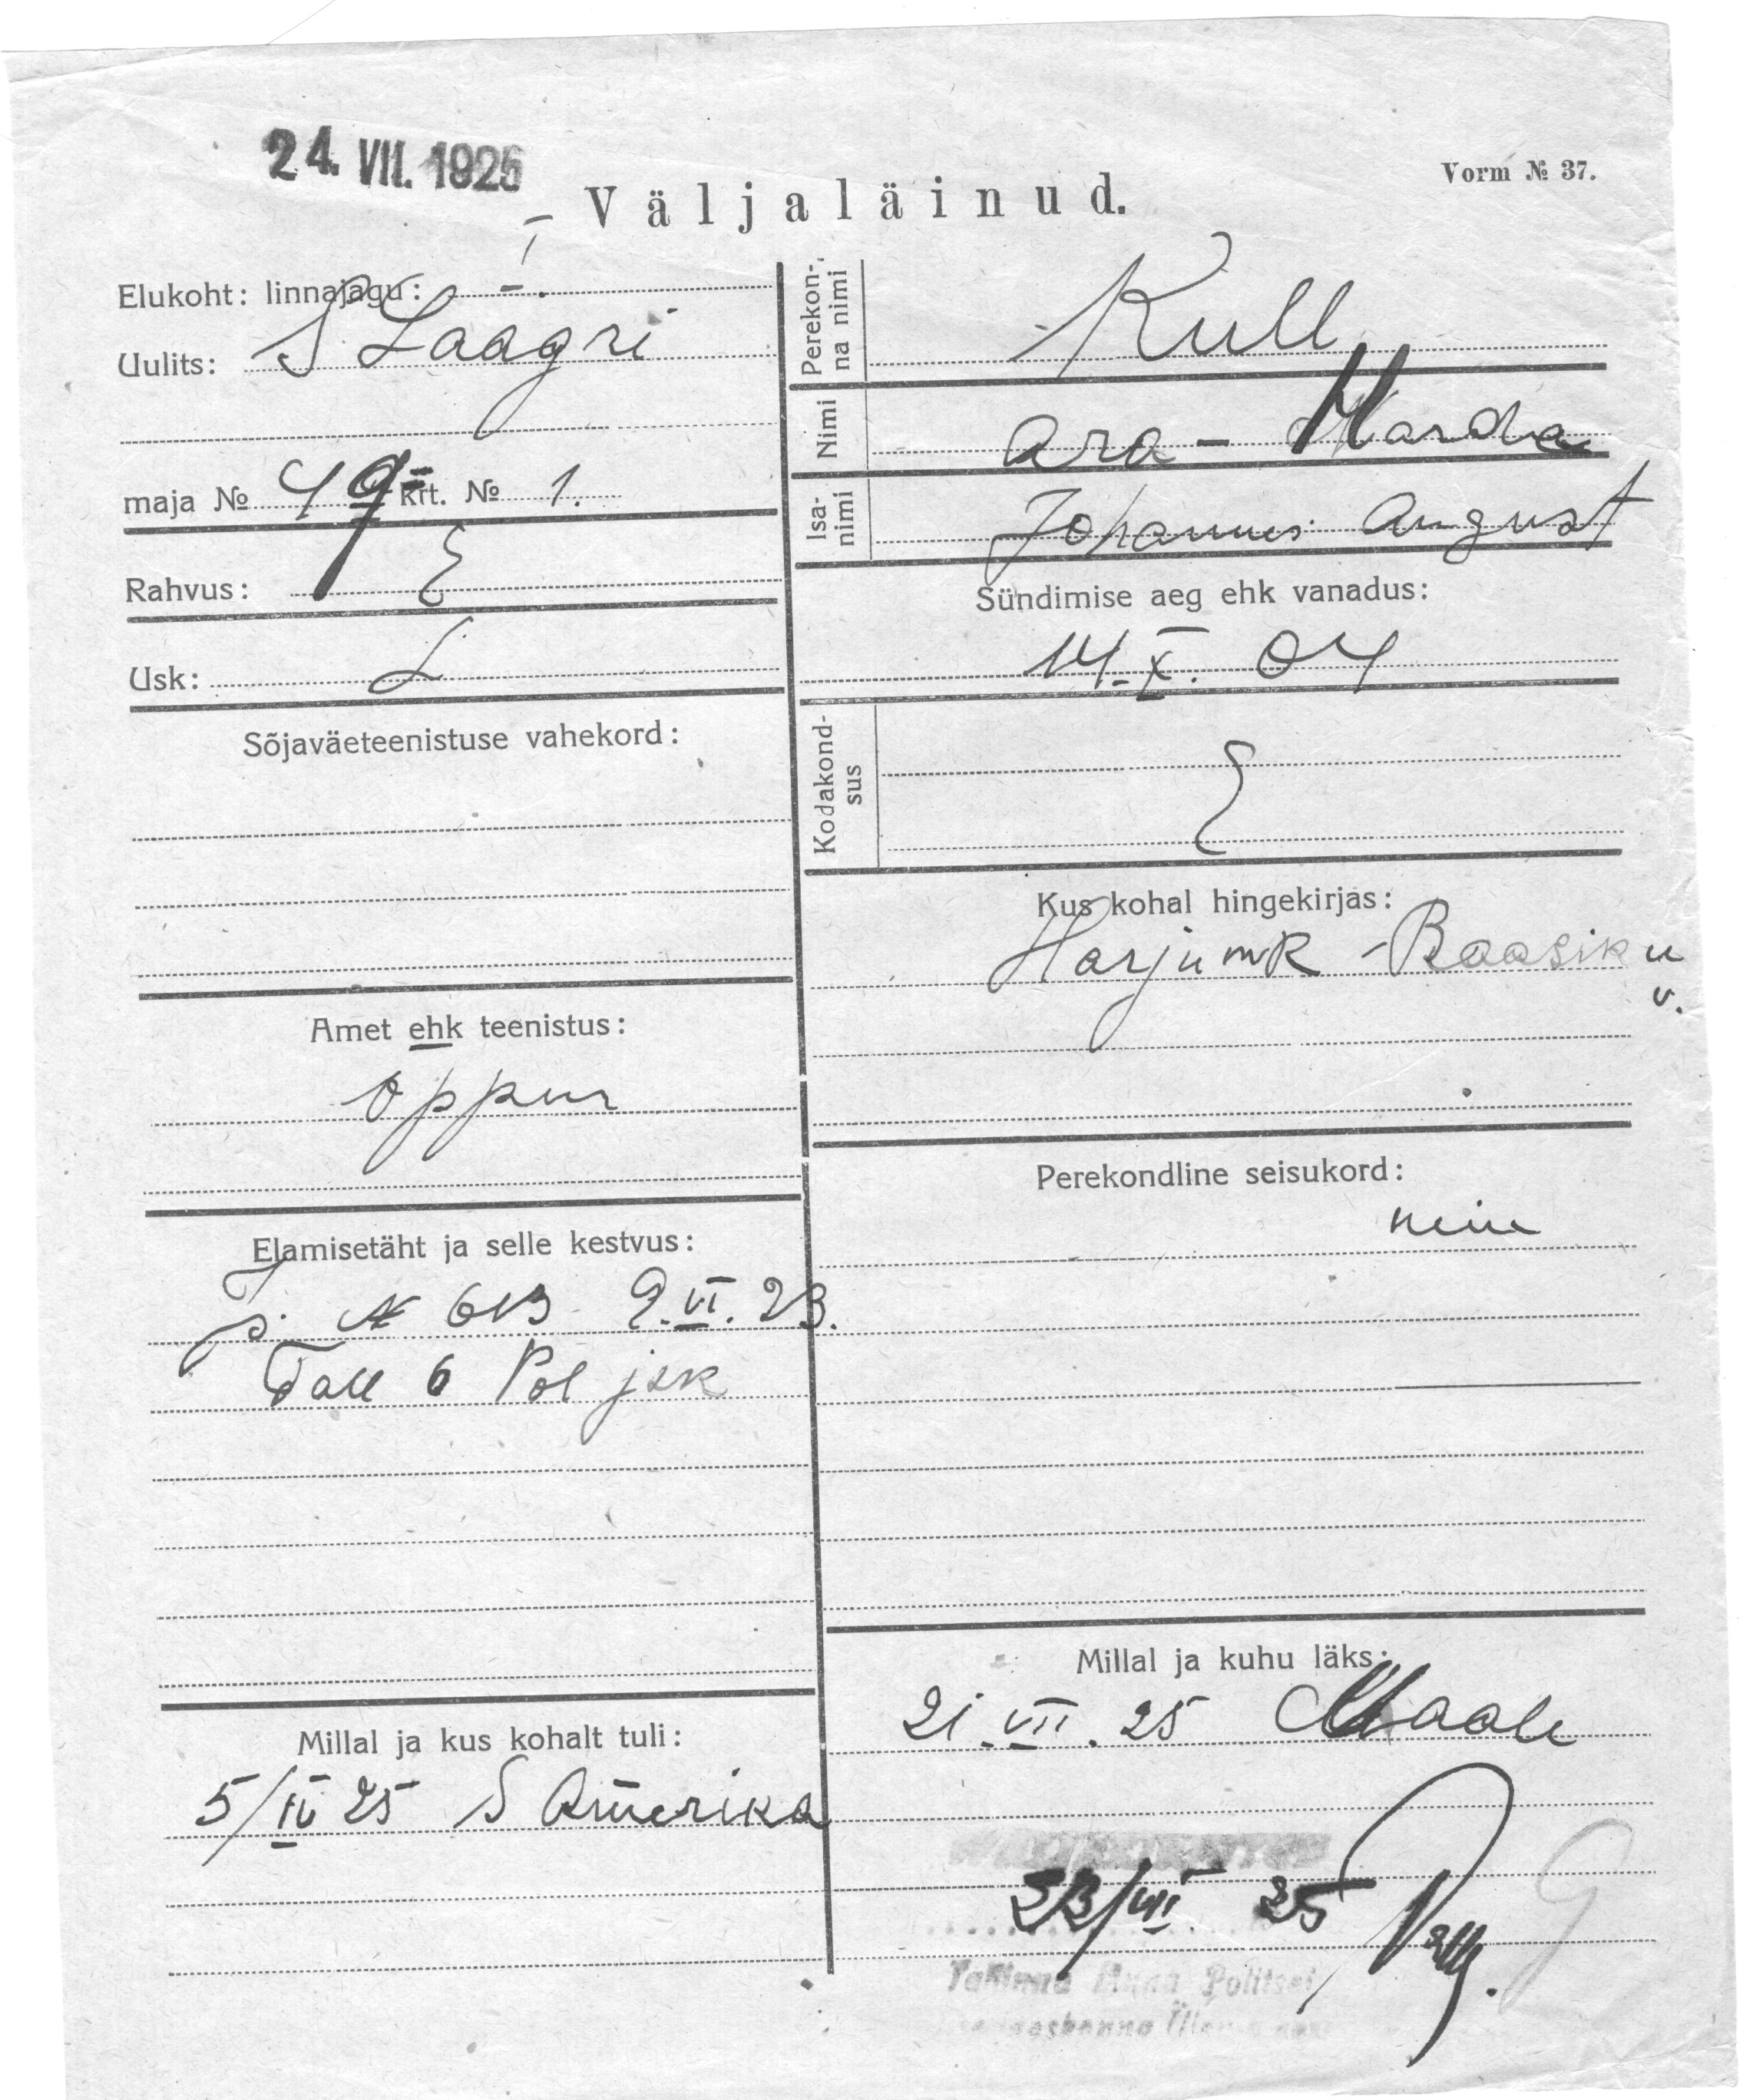 24. VII. 1925
Vorm № 37.
Väljaläinud.
Elukoht: linnajagu:
Uulits: S Laagri
maja № 49 krt. № 1.
Rahvus: E
Usk: L
Sõjaväeteenistuse vahekord:
Amet ehk teenistus:
õppur
Elamisetäht ja selle kestvus:
№ 613 9.VI.23.
Tall 6 Pol jsk
Millal ja kus kohalt tuli:
5/IV 25 S Ameerika
Perekonna nimi Kull
Nimi Ara - Harda
Isanimi Johannes August
Sündimise aeg ehk vanadus:
14.X.04
Kodakondsus E
Kus kohal hingekirjas:
Harju mk Raasiku
v.
Perekondline seisukord:
neiu
Millal ja kuhu läks:
21.VII.25 Maale
23/VII 25
Tallinna Linna Politsei